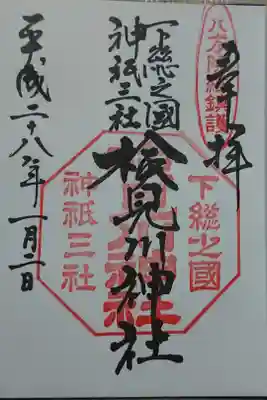 奉拝
八方除総鎮護
下総之國
神祇三社
検見川神社
下総之國
神祇三社
平成二十八年一月二日